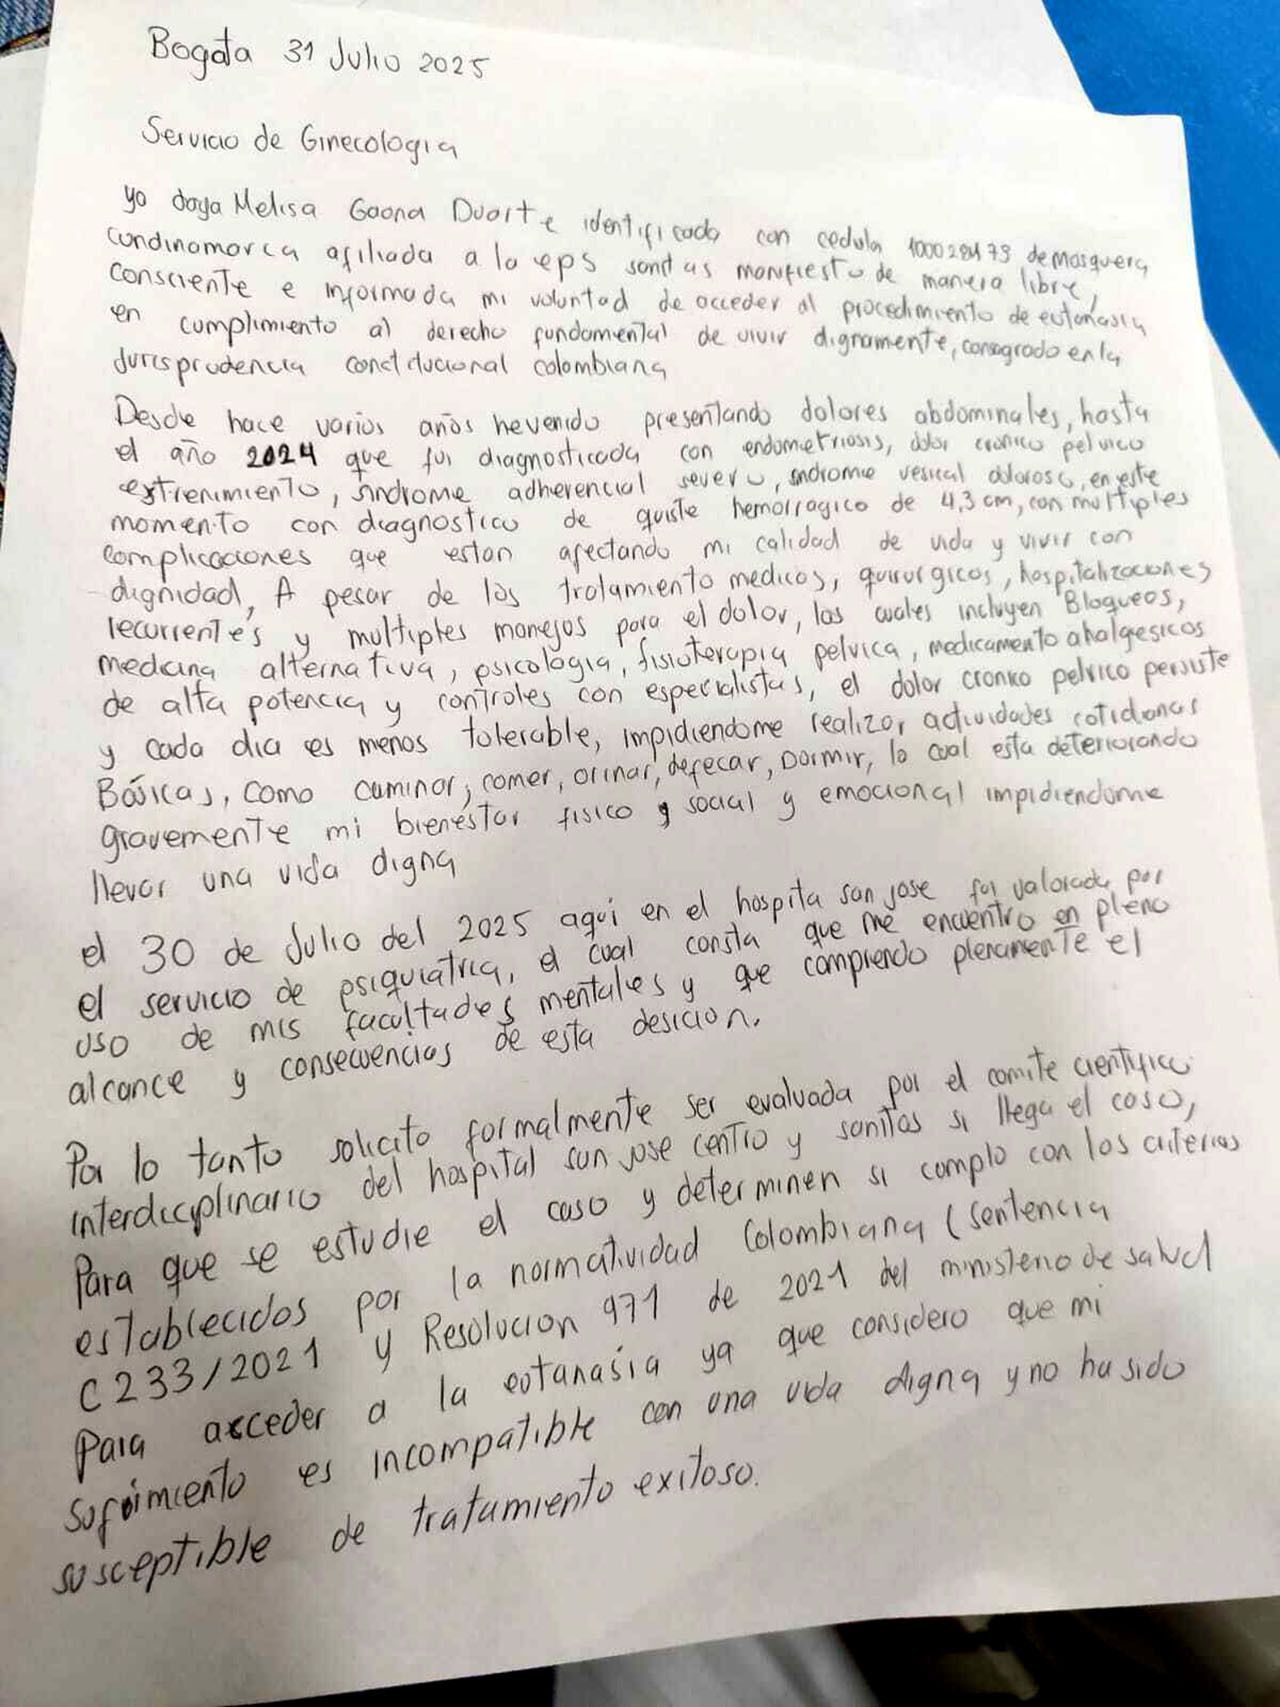 Bogota 31 Julio 2025
Servicio de Ginecologia
yo daya Melisa Gaona Duarte identificada con cedula de Mosquera
cundinamarca afiliada a la eps sanitas manifiesto de manera libre,
consciente e informada mi voluntad de acceder al procedimiento de eutanasia
en cumplimiento al derecho fundamental de vivir dignamente, consagrado en la
Jurisprudencia constitucional colombiana
Desde hace varios años he venido presentando dolores abdominales, hasta
el año 2024 que fui diagnosticada con endometriosis, dolor cronico pelvico
estrenimiento, sindrome adherencial severo, sindrome vesical doloroso, en este
momento con diagnostico de quiste hemorragico de 4,3 cm, con multiples
complicaciones que estan afectando mi calidad de vida y vivir con
dignidad, A pesar de los tratamiento medicos, quirurgicos, hospitalizaciones
recurrentes y multiples manejos para el dolor, los cuales incluyen Bloqueos,
medicina alternativa, psicologia, fisioterapia pelvica, medicamento analgesicos
de alta potencia y controles con especialistas, el dolor cronico pelvico persiste
y cada dia es menos tolerable, impidiendome realizar actividades cotidianas
Básicas, como caminar, comer, orinar, defecar, Dormir, lo cual esta deteriorando
gravemente mi bienestar fisico y social y emocional impidiendome
llevar una vida digna
el 30 de Julio del 2025 aqui en el hospital san jose fui valorada por
el servicio de psiquiatria, el cual consta que me encuentro en pleno
uso de mis facultades mentales y que comprendo plenamente el
alcance y consecuencias de esta desicion.
Por lo tanto solicito formalmente ser evaluada por el comite cientifico
interdiciplinario del hospital san jose centro y sanitas si llega el caso,
Para que se estudie el caso y determinen si cumplo con los criterios
establecidos por la normatividad Colombiana (sentencia
C233/2021 y Resolucion 971 de 2021 del ministerio de salud
Para acceder a la eutanasia ya que considero que mi
sufrimiento es incompatible con una vida digna y no ha sido
susceptible de tratamiento exitoso.